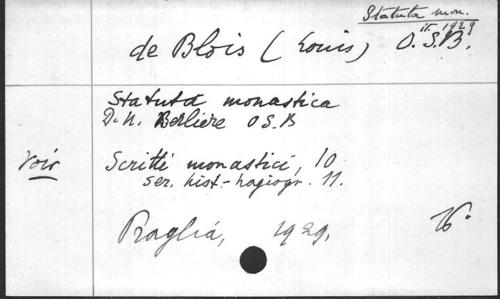 Statuta mon.
it. 1929
de Blois (Louis) O.S.B.
Statuta monastica
D. U. Berliere O S B
Voir
Scritti monastici, 10
ser. hist.-hagiogr. 11.
Praglia, 1929. 16°